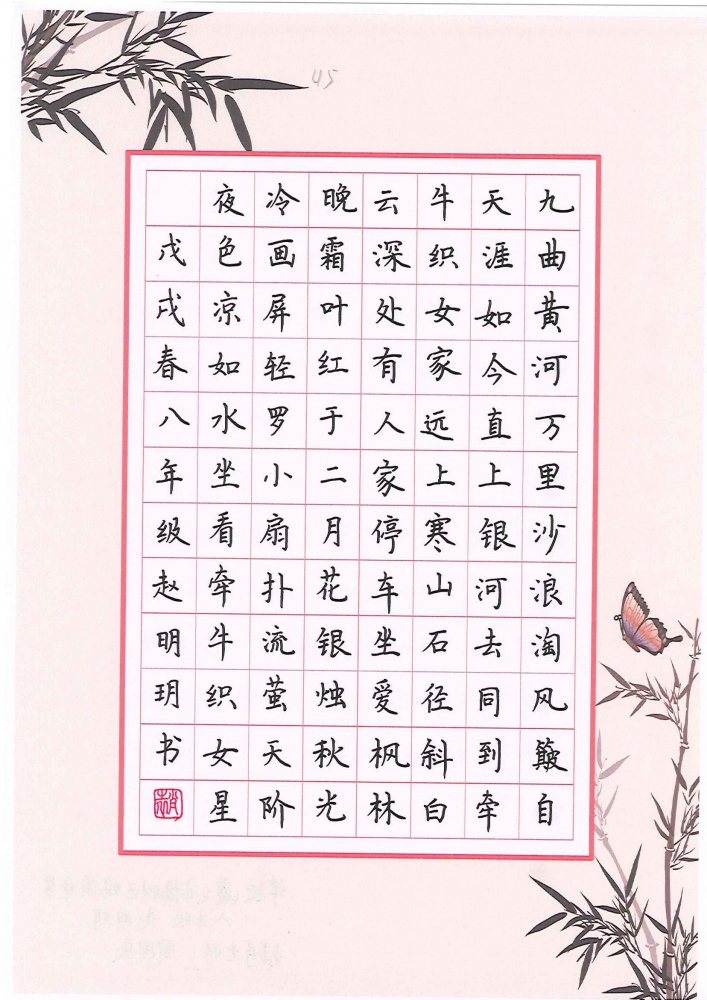 45
九曲黄河万里沙浪淘风簸自
天涯如今直上银河去同到牵
牛织女家远上寒山石径斜白
云深处有人家停车坐爱枫林
晚霜叶红于二月花银烛秋光
冷画屏轻罗小扇扑流萤天阶
夜色凉如水坐看牵牛织女星
戊戌春八年级赵明玥书